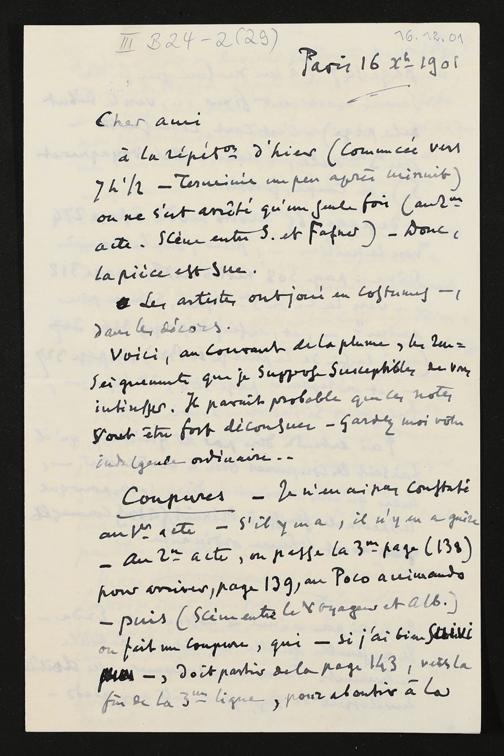 III B24-2(29)
16.12.01
Paris 16 Xbre 1901
Cher ami
à la répéton d'hier (Commencée vers
7h 1/2 – Terminée un peu après minuit)
on ne s'est arrêté qu'un seule fois (au 2me
acte. Scène entre S. et Fafner) – Donc,
la pièce est sue.
Les artistes ont joué en costumes –,
dans les décors.
Voici, au courant de la plume, les ren=
seignements que je suppose susceptibles de vous
intéresser. Il paraît probable que ces notes
vont être fort décousues – Gardez moi votre
indulgence ordinaire..
Coupures – Je n'en ai pas constaté
au 1er acte – s'il y en a, il n'y en a guère
– Au 2me acte, on passe la 3me page (138)
pour arriver, page 139, au Poco animando
– puis (Scène entre le Voyageur et Alb.)
on fait une coupure, qui – si j'ai bien suivi
–, doit partir de la page 143, vers la
fin de la 3me ligne, pour aboutir à la